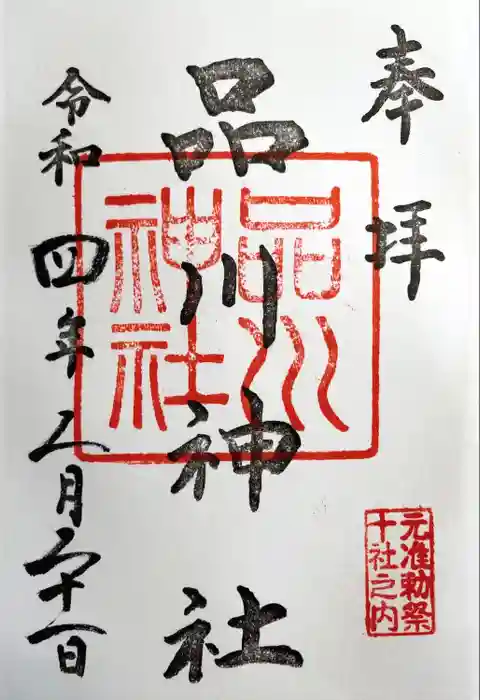 奉拝
元准勅祭
十社之内
品川神社
品川
神社
令和四年五月二十一日